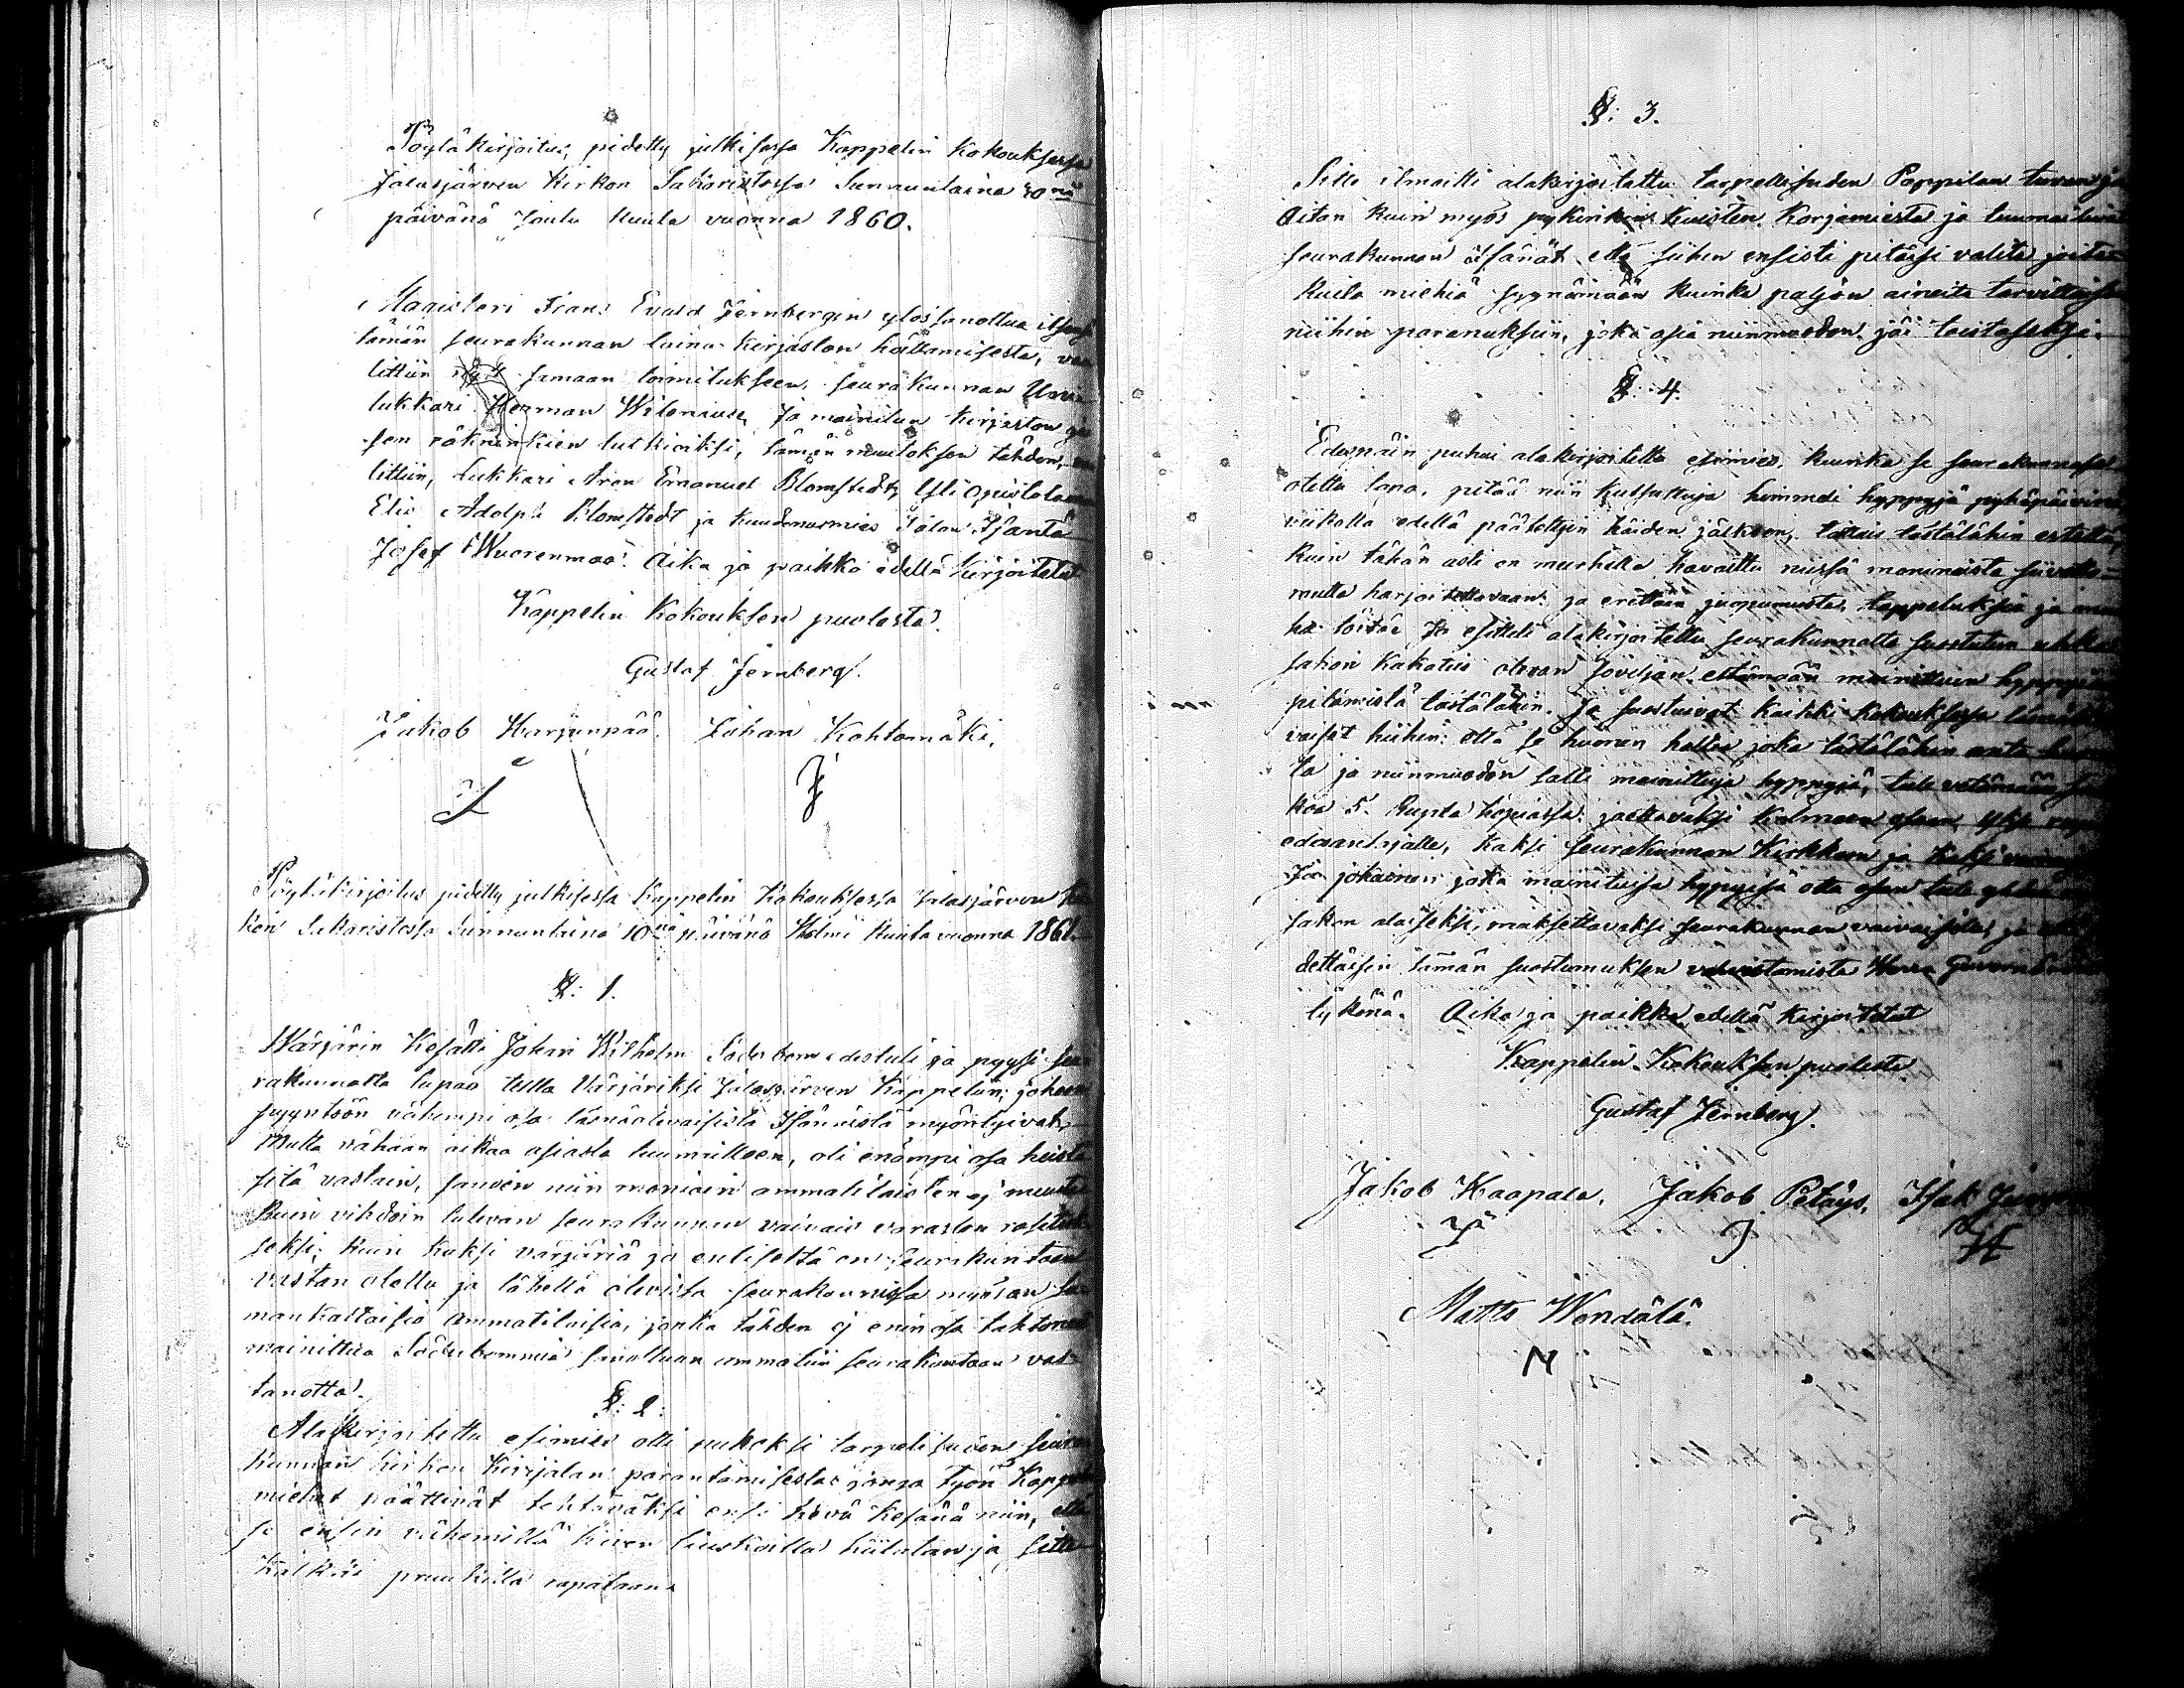 Pöytäkirjoitus, pidetty julkisessa Kappelin Kokouksessa
Jalasjärven Kirkon Sakaristossa Sunnuntaina 30nä
päivänä Joulu Kuuta vuonna 1860.
Magisteri Frans Evald Jernbergin ylössanottua itsensä
tämän seurakunnan laina-Kirjaston hoitamisesta, va
littiin samaan toimitukseen, seurakunnan
lukkari Herman Wilenius, Ja mainitun kirjaston
sen räkninkien tutkioiksi, tämän muutoksen tähden,
littiin, Lukkari Aron Emanuel Blomstedt, Yliopistolainen
Elis Adolph Blomstedt ja Kuudennusmies Talon Isäntä
Josef Wuorenmaa. Aika ja paikka edellä kirjoitetut
Kappelin Kokouksen puolesta.
Gustaf Jernberg.
Jakob Harjunpää. Johan Kohtamäki.
J J
Pöytäkirjoitus pidetty julkisessa Kappelin Kokouksessa Jalasjärven
kon Sakaristossa Sunnuntaina 10nä päivänä Helmi Kuuta vuonna 1861.
§: 1.
Wärjärin Kisälli Johan Wilhelm Söderbom edestuli ja pyysi seu
rakunnalta lupaa tulla Värjäriksi Jalasjärven Kappeliin; johon
pyyntöön vähempi osa läsnäolevaisista Isännistä myöntyivät,
Mutta vähään aikaa asiasta tuumailleen, oli enämpi osa heistä
sitä vastain, sanoen niin moniain ammatilaisten ej muuta
Kuin vihdoin tulevan seurakunnan vaivais varaston rasituk
seksi; Kuin Kaksi värjäriä ja enliseltä on seurakuntaan
vastan otettu ja lähellä olevista seurakunnissa myösan sa
mankaltaisia ammatilaisia, jonka tähden ej enin osa tahtonut
mainittua Söderbommia sanottuun ammatiin seurakuntaan vas
tanottaa.
§: 2:
Alakirjoitettu esimies otti puheksi tarpelisuden seura
kunnan kirkon Kivijalan parantamisesta; jonga työn Kappeli
miehet päättivät tehtäväksi ensi tulevä Kesänä niin, että
se ensin vähemillä kiven liuskoilla kiilatan ja sitte
Kalkki pruukilla rapataan.
§: 3.
Sitte ilmoitti alakirjoitettu tarpellisuden Pappilan tuvan ja
Aitan Kuin myös pykinkin Kuisten Korjamista ja tuumailivat
seurakunnan Isännät että siihen ensisti pitäisi valita joita
kuita miehiä syynämään kuinka paljon aineita tarvittaisi
niihin parannuksiin, joka asia niinmuodon jäi toistaseksi.
§: 4.
Edespäin puhui alakirjoitettu esimies, kuinka se seurakunnassa
otettu tapa, pitää niin kutsuttuja himmdi hyppyjä pyhäpäivinä
viikolla edellä päätettyin häiden jälkeen, taittais tästälähin estettää,
Kuin tähän asti on murhella havaittu niissä monimaista siivotto
mutta harjoitettavaan ja erittäin juopumusta, tappeluksia ja
ka töitä. Ja esitteli alakirjoitettu seurakunnalta suostutun uhka
sakon Kakatiis olevan soveljan estämään mainittuin hyppyin
pitämistä tästälähin. Ja suostuivat Kaikki Kokouksessa läsnäole
vaiset siihin: että se huonen haltia joka tästälähin anta huonen
ta ja niinmuodon salli mainittuja hyppyjä, tule vetämään sa
koa 5. Rupla hopiassa jaettavaksi Kolmeen osaan, Yksi osa
edesantajalle, Kaksi seurakunnan Kirkkoon ja Kaksi
Ja jokainen joka mainituissa hyppyissä otta osan tule yhden
sakon alaiseksi, maksettavaksi seurakunnan vaivaisille, ja
dettäisin tämän suostumuksen vahvistamista Wasa Guvernörin
tykönä. Aika ja paikka edellä kirjoitetut
Kappelin Kokouksen puolesta
Gustaf Jernberg.
Jakob Haapala, Jakob Petäys, Isak
J
Matts Wendälä.